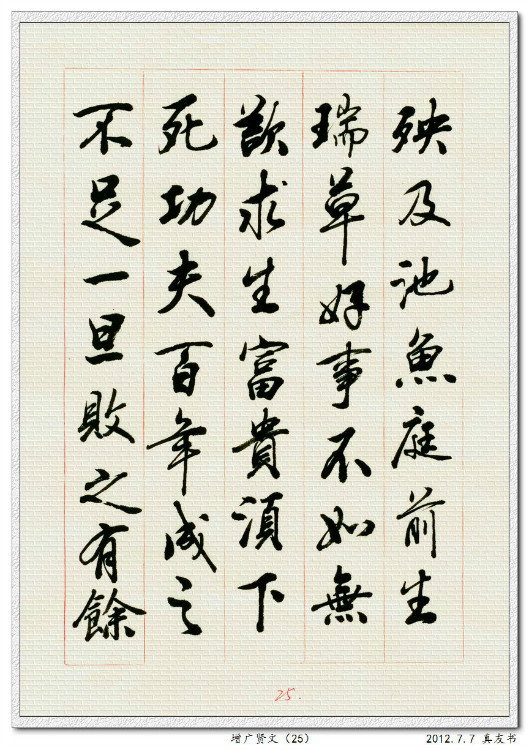 殃及池魚庭前生
瑞草好事不如無
欲求生富貴須下
死功夫百年成之
不足一旦敗之有餘
25.
增广贤文（25）
2012.7.7 真友书